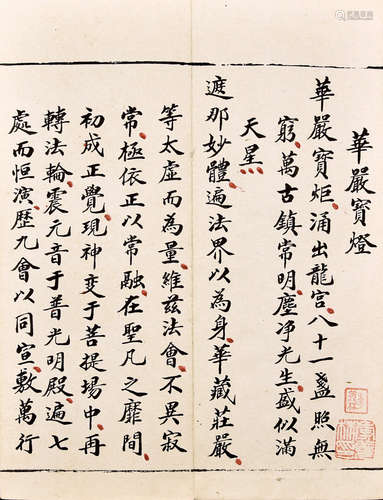 華嚴寶燈
華嚴寶炬涌出龍宮八十一盞照無
窮萬古鎮常明塵净光生盛似滿
天星
遮那妙體遍法界以為身華藏莊嚴
等太虛而為量維兹法會不異寂
常極依正以常融在聖凡之靡間
初成正覺現神变于菩提場中再
轉法輪震元音于普光明殿遍七
處而恒演歷九會以同宣敷萬行